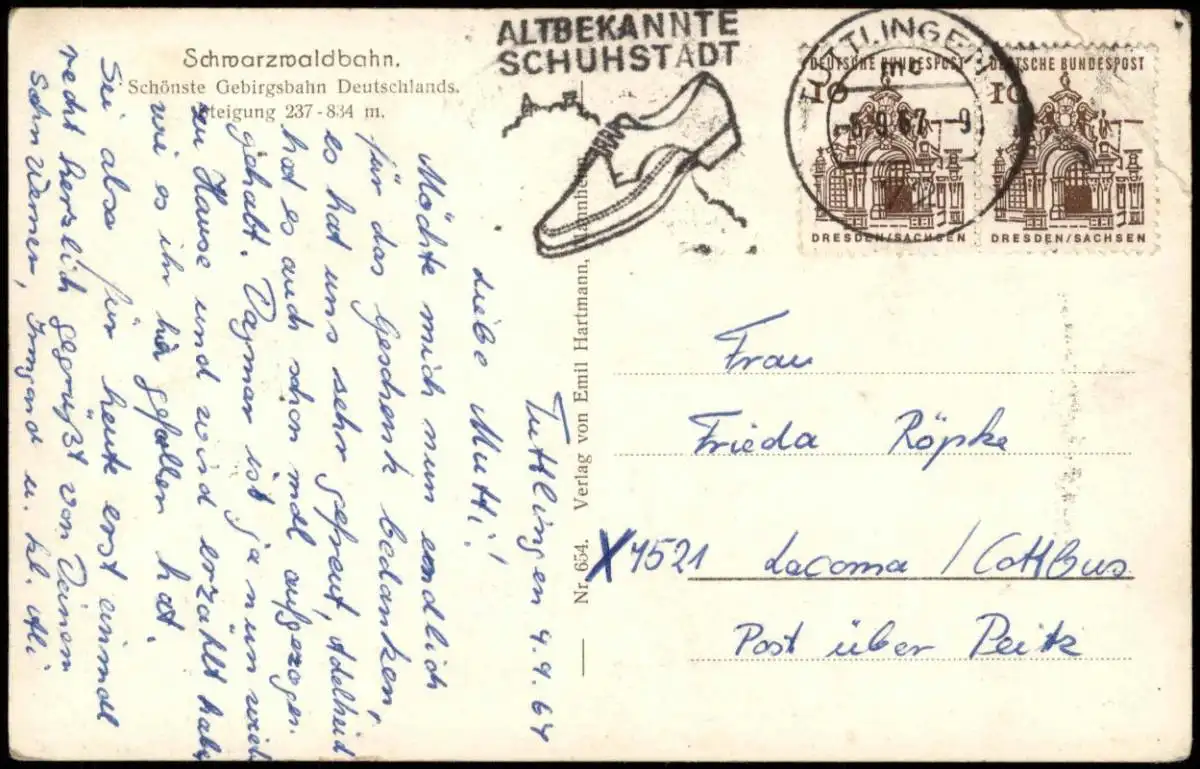 Schwarzwaldbahn.
Schönste Gebirgsbahn Deutschlands.
Steigung 237-834 m.
ALTBEKANNTE
SCHUHSTADT
TUTTLINGEN
mc
-5.9.67.-9
DEUTSCHE BUNDESPOST
10
DRESDEN/SACHSEN
DEUTSCHE BUNDESPOST
10
DRESDEN/SACHSEN
Tuttlingen 4.9.67
Liebe Mutti!
Möchte mich nun endlich
für das Geschenk bedanken,
es hat uns sehr gefreut, Adelheid
hat es auch schon mal aufgezogen
gehabt. Dagmar ist ja nun wieder
zu Hause und wird erzählt haben
wie es ihr hier gefallen hat.
Sei also für heute erst einmal
recht herzlich gegrüßt von Deinem
Sohn Werner, Irmgard u. kl. Adi
Nr. 654. Verlag von Emil Hartmann, Mannheim
Frau
Frieda Röpke
X7521 Lacoma / Cottbus
Post über Peitz